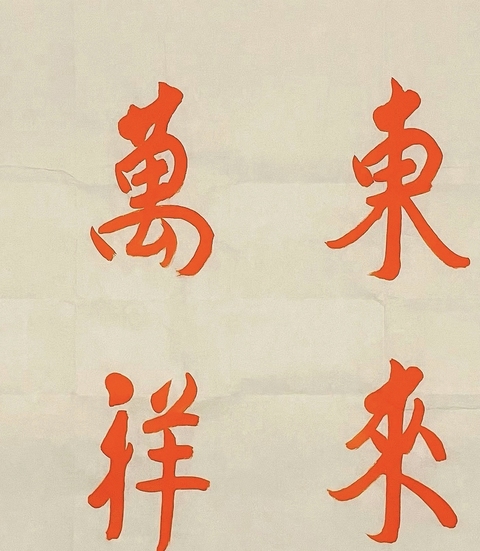 東來
萬祥